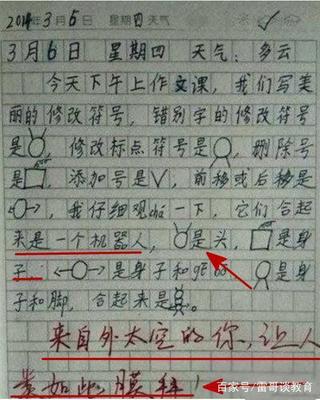 2014年3月6日 星期四 天气
3月6日 星期四 天气：多云
今天下午上作文课，我们写美
丽的修改符号，错别字的修改符号
是，修改标点符号是，删除号
是，添加号是，前移或后移是
，我仔细观chá一下，它们合起
来是一个机器人，是头，是身
子，是身子和gē bo，是身
子和脚，合起来是。
来自外太空的你，让人
类如此膜拜！
百家号/雷哥谈教育